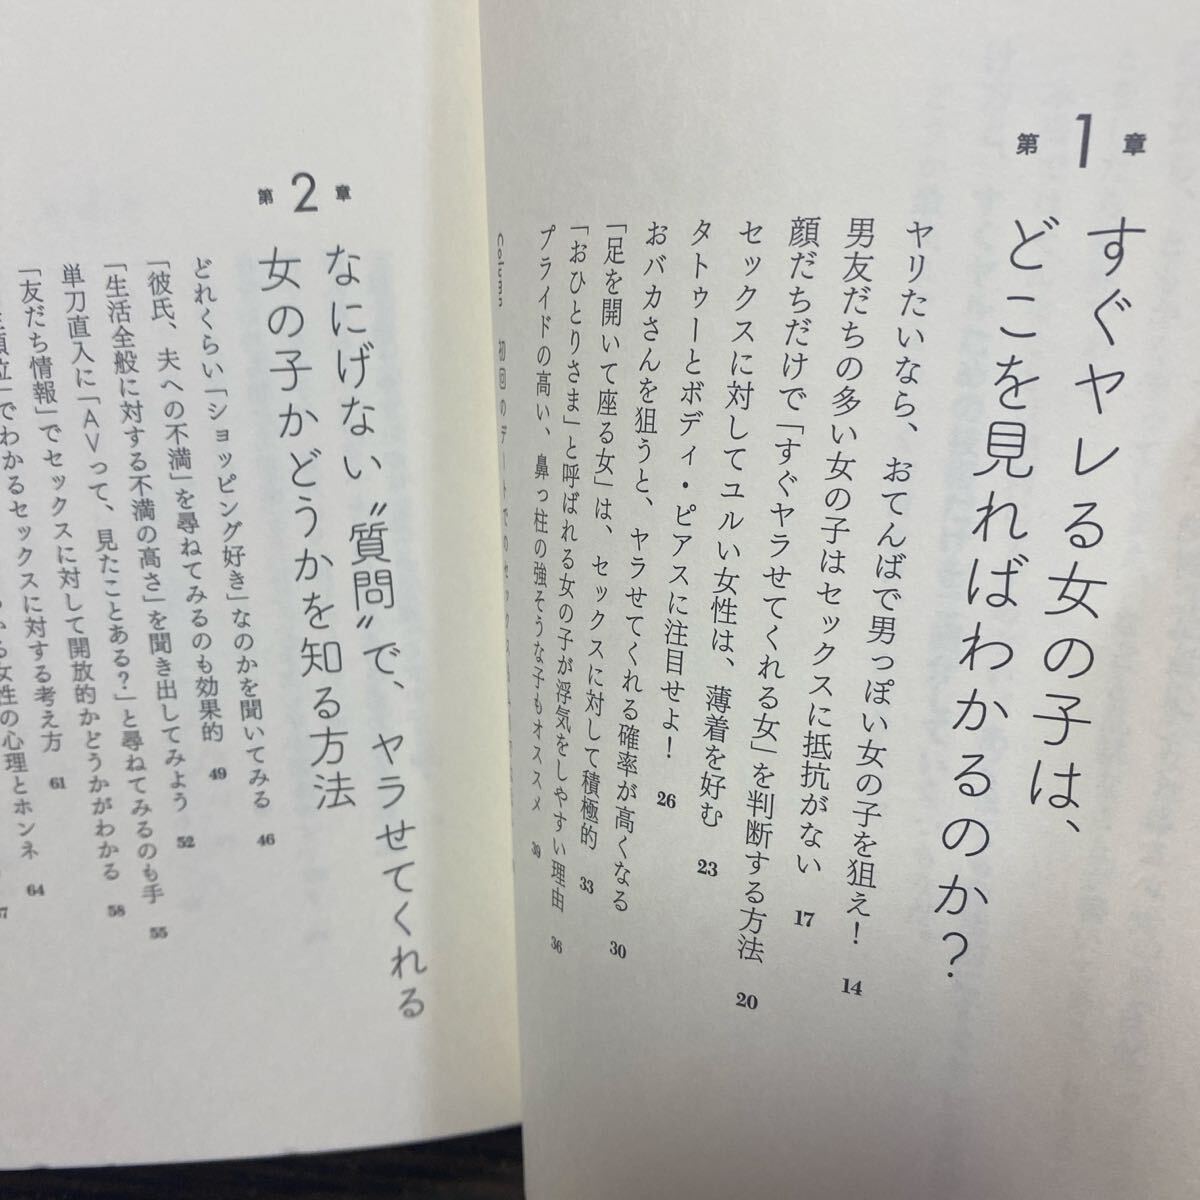 第1章
すぐヤレる女の子は、
どこを見ればわかるのか?
ヤリたいなら、おてんばで男っぽい女の子を狙え! 14
男友だちの多い女の子はセックスに抵抗がない 17
顔だちだけで「すぐヤラせてくれる女」を判断する方法 20
セックスに対してユルい女性は、薄着を好む 23
タトゥーとボディ・ピアスに注目せよ! 26
おバカさんを狙うと、ヤラせてくれる確率が高くなる 30
「足を開いて座る女」は、セックスに対して積極的 33
「おひとりさま」と呼ばれる女の子が浮気をしやすい理由 36
プライドの高い、鼻っ柱の強そうな子もオススメ 39
Column 初回のデートでのセックス
第2章
なにげない〝質問〟で、ヤラせてくれる
女の子かどうかを知る方法
どれくらい「ショッピング好き」なのかを聞いてみる 46
「彼氏、夫への不満」を尋ねてみるのも効果的 49
「生活全般に対する不満の高さ」を聞き出してみよう 52
単刀直入に「AVって、見たことある?」と尋ねてみるのも手 55
「友だち情報」でセックスに対して開放的かどうかがわかる 58
でわかるセックスに対する考え方 61
女性の心理とホンネ 64